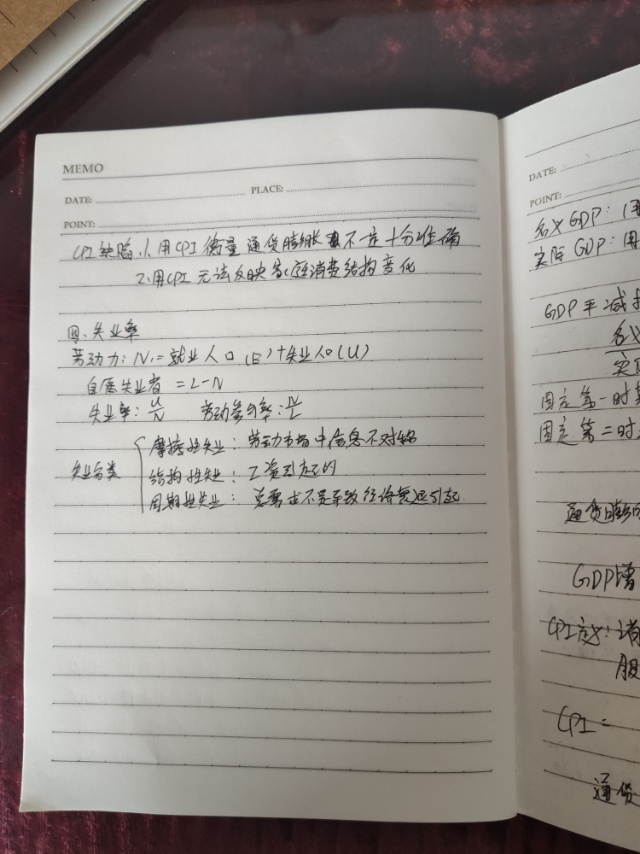 MEMO
DATE:
PLACE:
POINT:
CPI缺陷:1.用CPI衡量通货膨胀不一定十分准确
2.用CPI无法反映家庭消费结构变化
四.失业率
劳动力:N:=就业人口(E)+失业人口(U)
自愿失业者=L-N
失业率:U/N 劳动参与率:N/L
失业分类
摩擦性失业:劳动市场中信息不对称
结构性失业:工资引起的
周期性失业:总需求不足导致经济衰退引起
DATE:
POINT:
名义GDP:
实际GDP:用
GDP平减指
名义
实际
固定第一时期
固定第二时
通货膨胀
GDP增
CPI定义:消
服
CPI=
通货